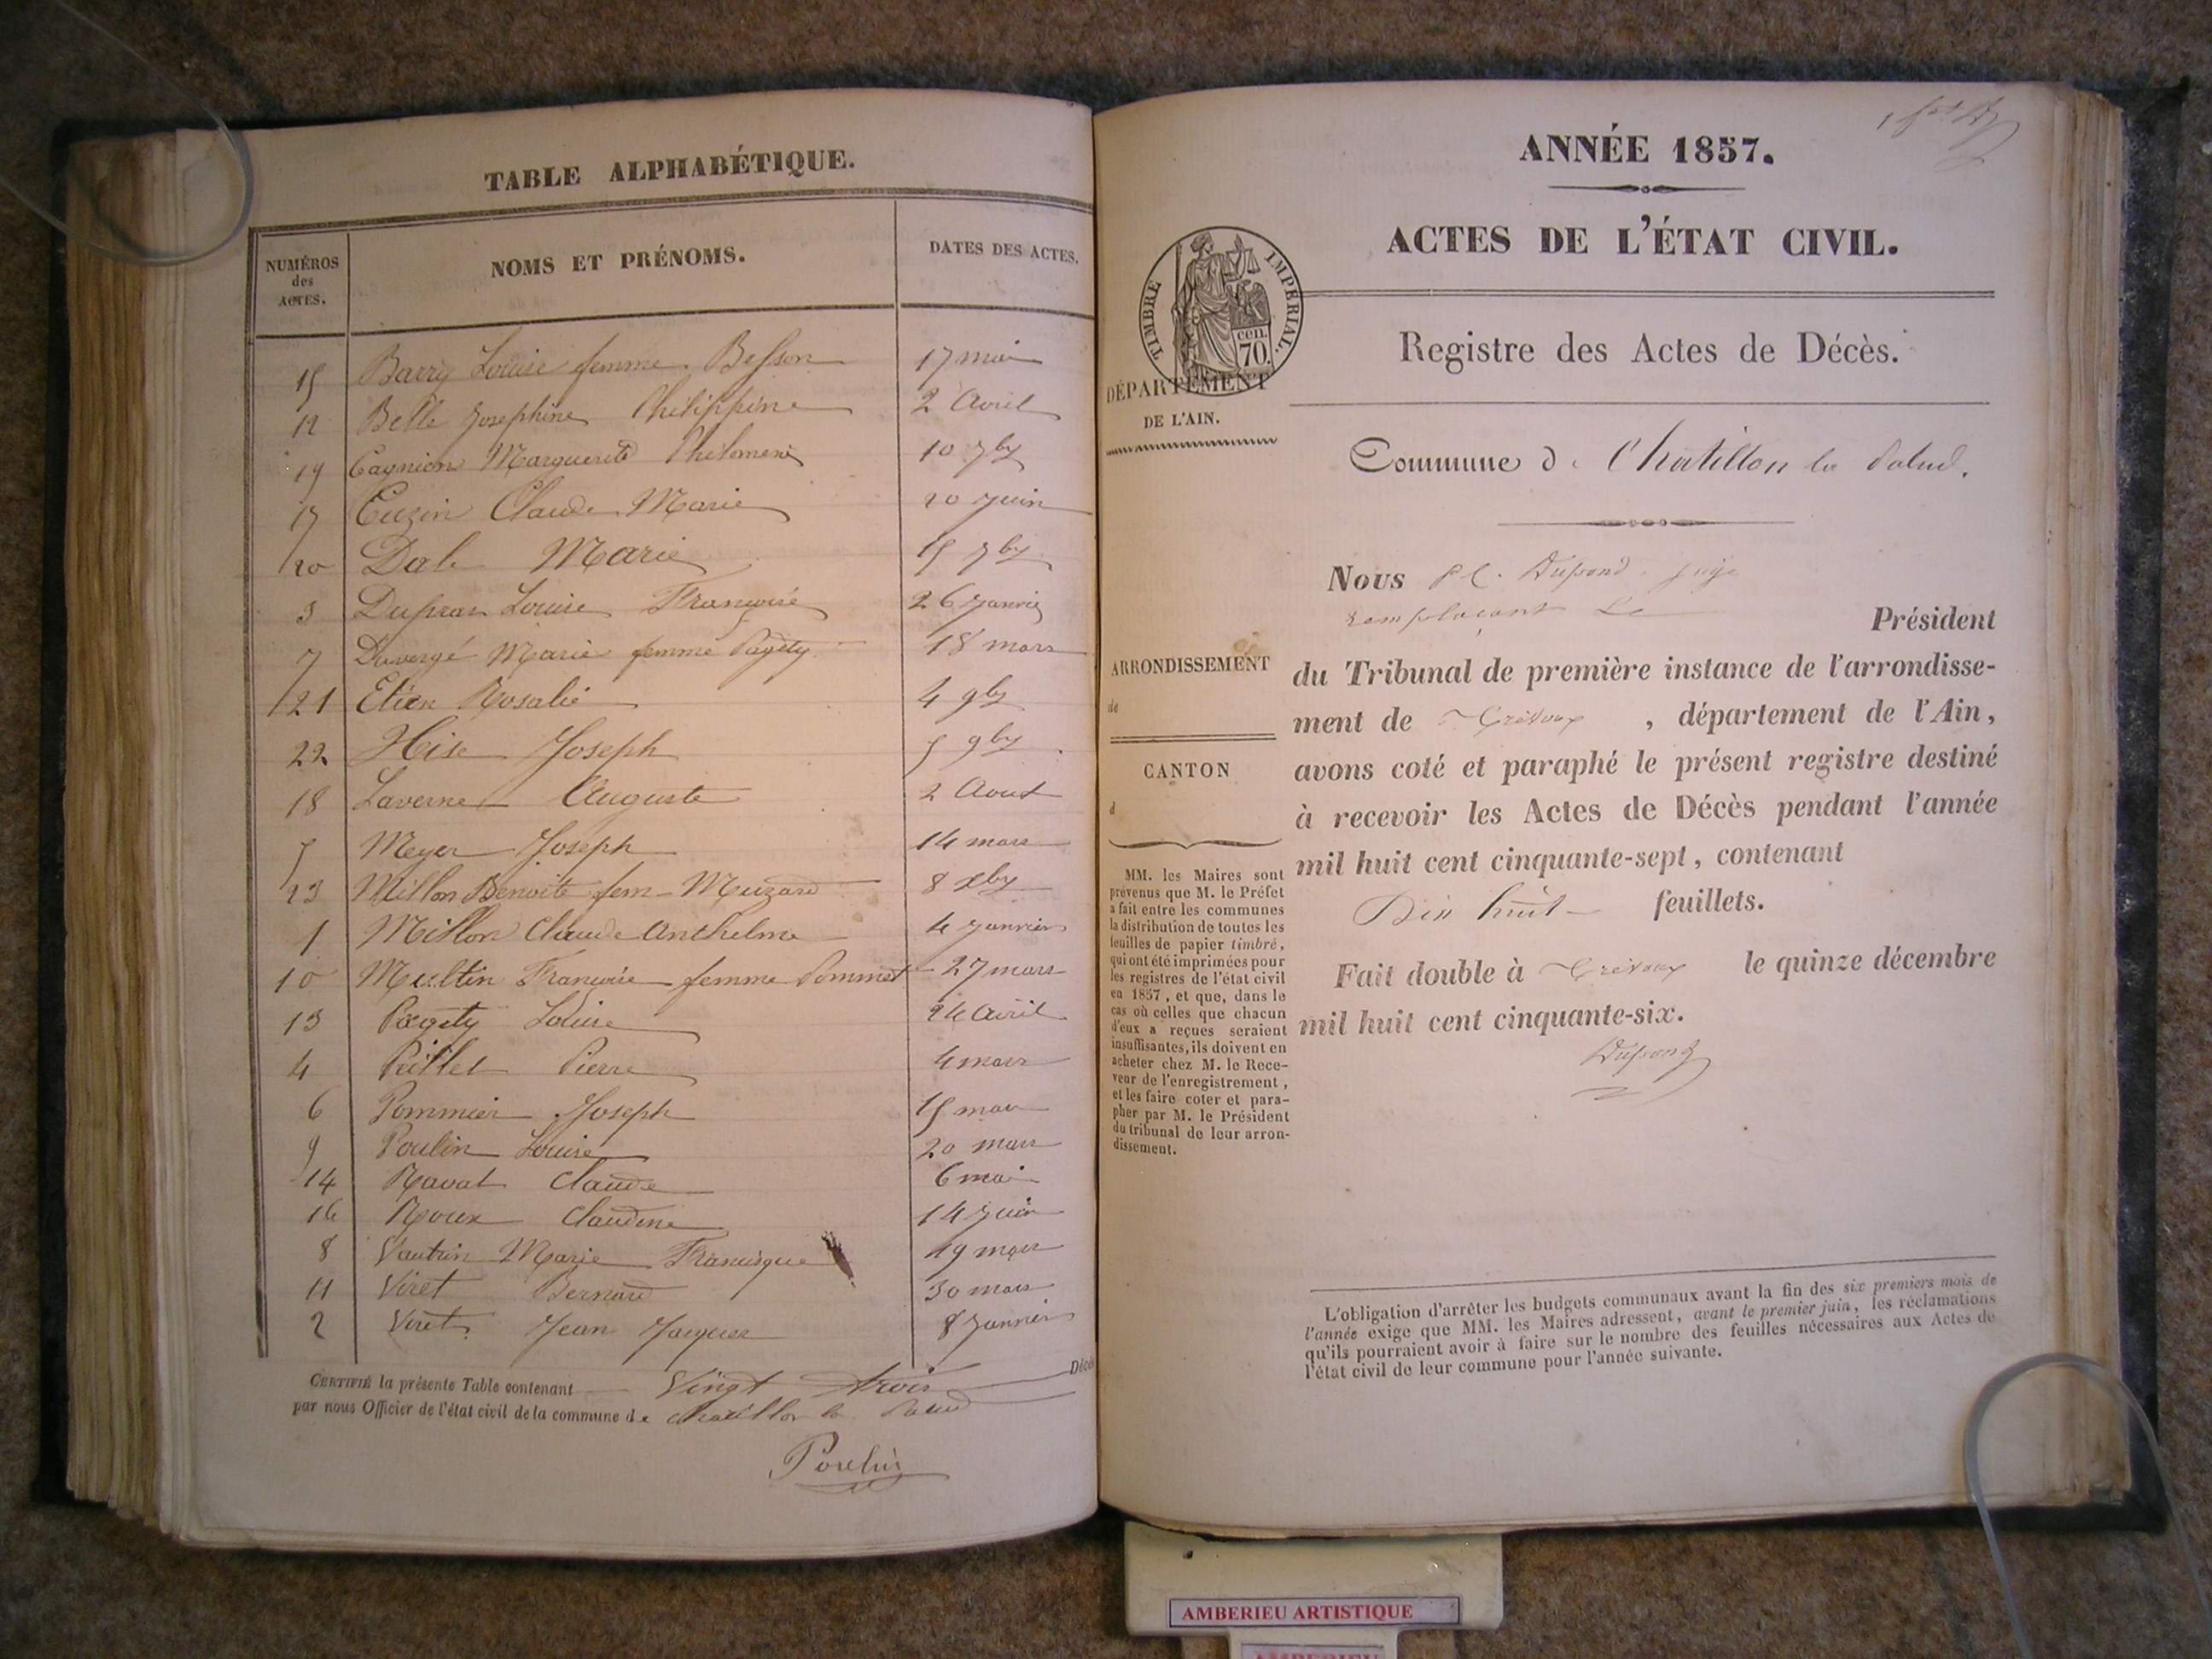 TABLE ALPHABÉTIQUE.
NUMÉROS
des
ACTES.
NOMS ET PRÉNOMS.
DATES DES ACTES.
15 Barry Louise femme Besson 17 mai
12 Belle Josephine Philippine 2 Avril
19 Cagnion Marguerite Philomene 10 7bre
17 Cuzin Claude Marie 20 Juin
20 Marie 15 7bre
3 Louise Françoise 26 Janvier
7 Duvergé Marie femme Pagety 18 mars
21 Etien Rosalie 4 9bre
22 Hise Joseph 5 9bre
18 Laverne Auguste 2 Aout
5 Meyer Joseph 14 mars
23 Millon Benoite fem Muzard 8 Xbre
1 Millon Claude Anthelme 4 Janvier
10 Françoise femme Pommet 27 mars
13 Pagety Louise 24 Avril
4 Pillet Pierre 4 mars
6 Pommier Joseph 15 mars
9 Poulin Louise 20 mars
14 Ravat Claude 6 mai
16 Roux Claudine 14 Juin
8 Vautrin Marie Francisque 19 mars
11 Viret Bernard 30 mars
2 Viret Jean Jacques 8 Janvier
CERTIFIÉ la présente Table contenant Vingt trois Décè
par nous Officier de l'état civil de la commune de Chatillon la Palud
Poulin
ANNÉE 1857.
ACTES DE L'ÉTAT CIVIL.
TIMBRE IMPERIAL.
cen.
70.
Registre des Actes de Décès.
DÉPARTEMENT
DE L'AIN.
Commune de Chatillon la Palud.
Nous Dupond juge
remplaçant le Président
ARRONDISSEMENT
de
du Tribunal de première instance de l'arrondisse-
ment de Trévoux, département de l'Ain,
CANTON
d
avons coté et paraphé le présent registre destiné
à recevoir les Actes de Décès pendant l'année
mil huit cent cinquante-sept, contenant
Dix huit feuillets.
Fait double à Trévoux le quinze décembre
mil huit cent cinquante-six.
Dupond
MM. les Maires sont
prévenus que M. le Préfet
a fait entre les communes
la distribution de toutes les
feuilles de papier timbré,
qui ont été imprimées pour
les registres de l'état civil
en 1857, et que, dans le
cas où celles que chacun
d'eux a reçues seraient
insuffisantes, ils doivent en
acheter chez M. le Rece-
veur de l'enregistrement,
et les faire coter et para-
pher par M. le Président
du tribunal de leur arron-
dissement.
L'obligation d'arrêter les budgets communaux avant la fin des six premiers mois de
l'année exige que MM. les Maires adressent, avant le premier juin, les réclamations
qu'ils pourraient avoir à faire sur le nombre des feuilles nécessaires aux Actes de
l'état civil de leur commune pour l'année suivante.
AMBERIEU ARTISTIQUE
AMBERIEU